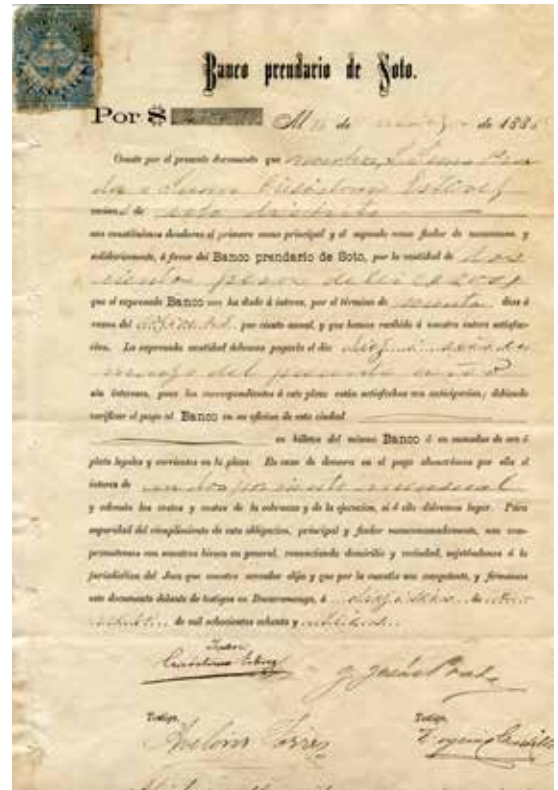 Banco prendario de Soto.
Por $ Al 16 de de 188
Conste por el presente documento que nosotros,
Juan Crisóstomo Estévez
vecinos de este distrito
nos constituimos deudores el primero como principal y el segundo como fiador de mancomun, y
solidariamente, á favor del Banco prendario de Soto, por la cantidad de dos
cientos pesos de ley
que el expresado Banco nos ha dado á interes, por el término de noventa dias á
razon del por ciento anual, y que hemos recibido á nuestra entera satisfac-
cion. La expresada cantidad debemos pagarla el dia diez i seis de
del presente año
sin intereses, pues los correspondientes á este plazo están satisfechos con anticipacion; debiendo
verificar el pago al Banco en su oficina de esta ciudad
en billetes del mismo Banco ó en monedas de oro ó
plata legales y corrientes en la plaza. En caso de demora en el pago abonaremos por ella el
interes de un dos por ciento mensual
y además los costos y costas de la cobranza y de la ejecucion, si á ello diéremos lugar. Para
seguridad del cumplimiento de esta obligacion, principal y fiador mancomunadamente, nos com-
prometemos con nuestros bienes en general, renunciando domicilio y vecindad, sujetándonos á la
jurisdiccion del Juez que nuestro acreedor elija y que por la cuantía sea competente, y firmamos
este documento delante de testigos en Bucaramanga, á diez i seis de
de mil ochocientos ochenta y
Juan
Crisóstomo Estévez
Testigo, Testigo,
Torres